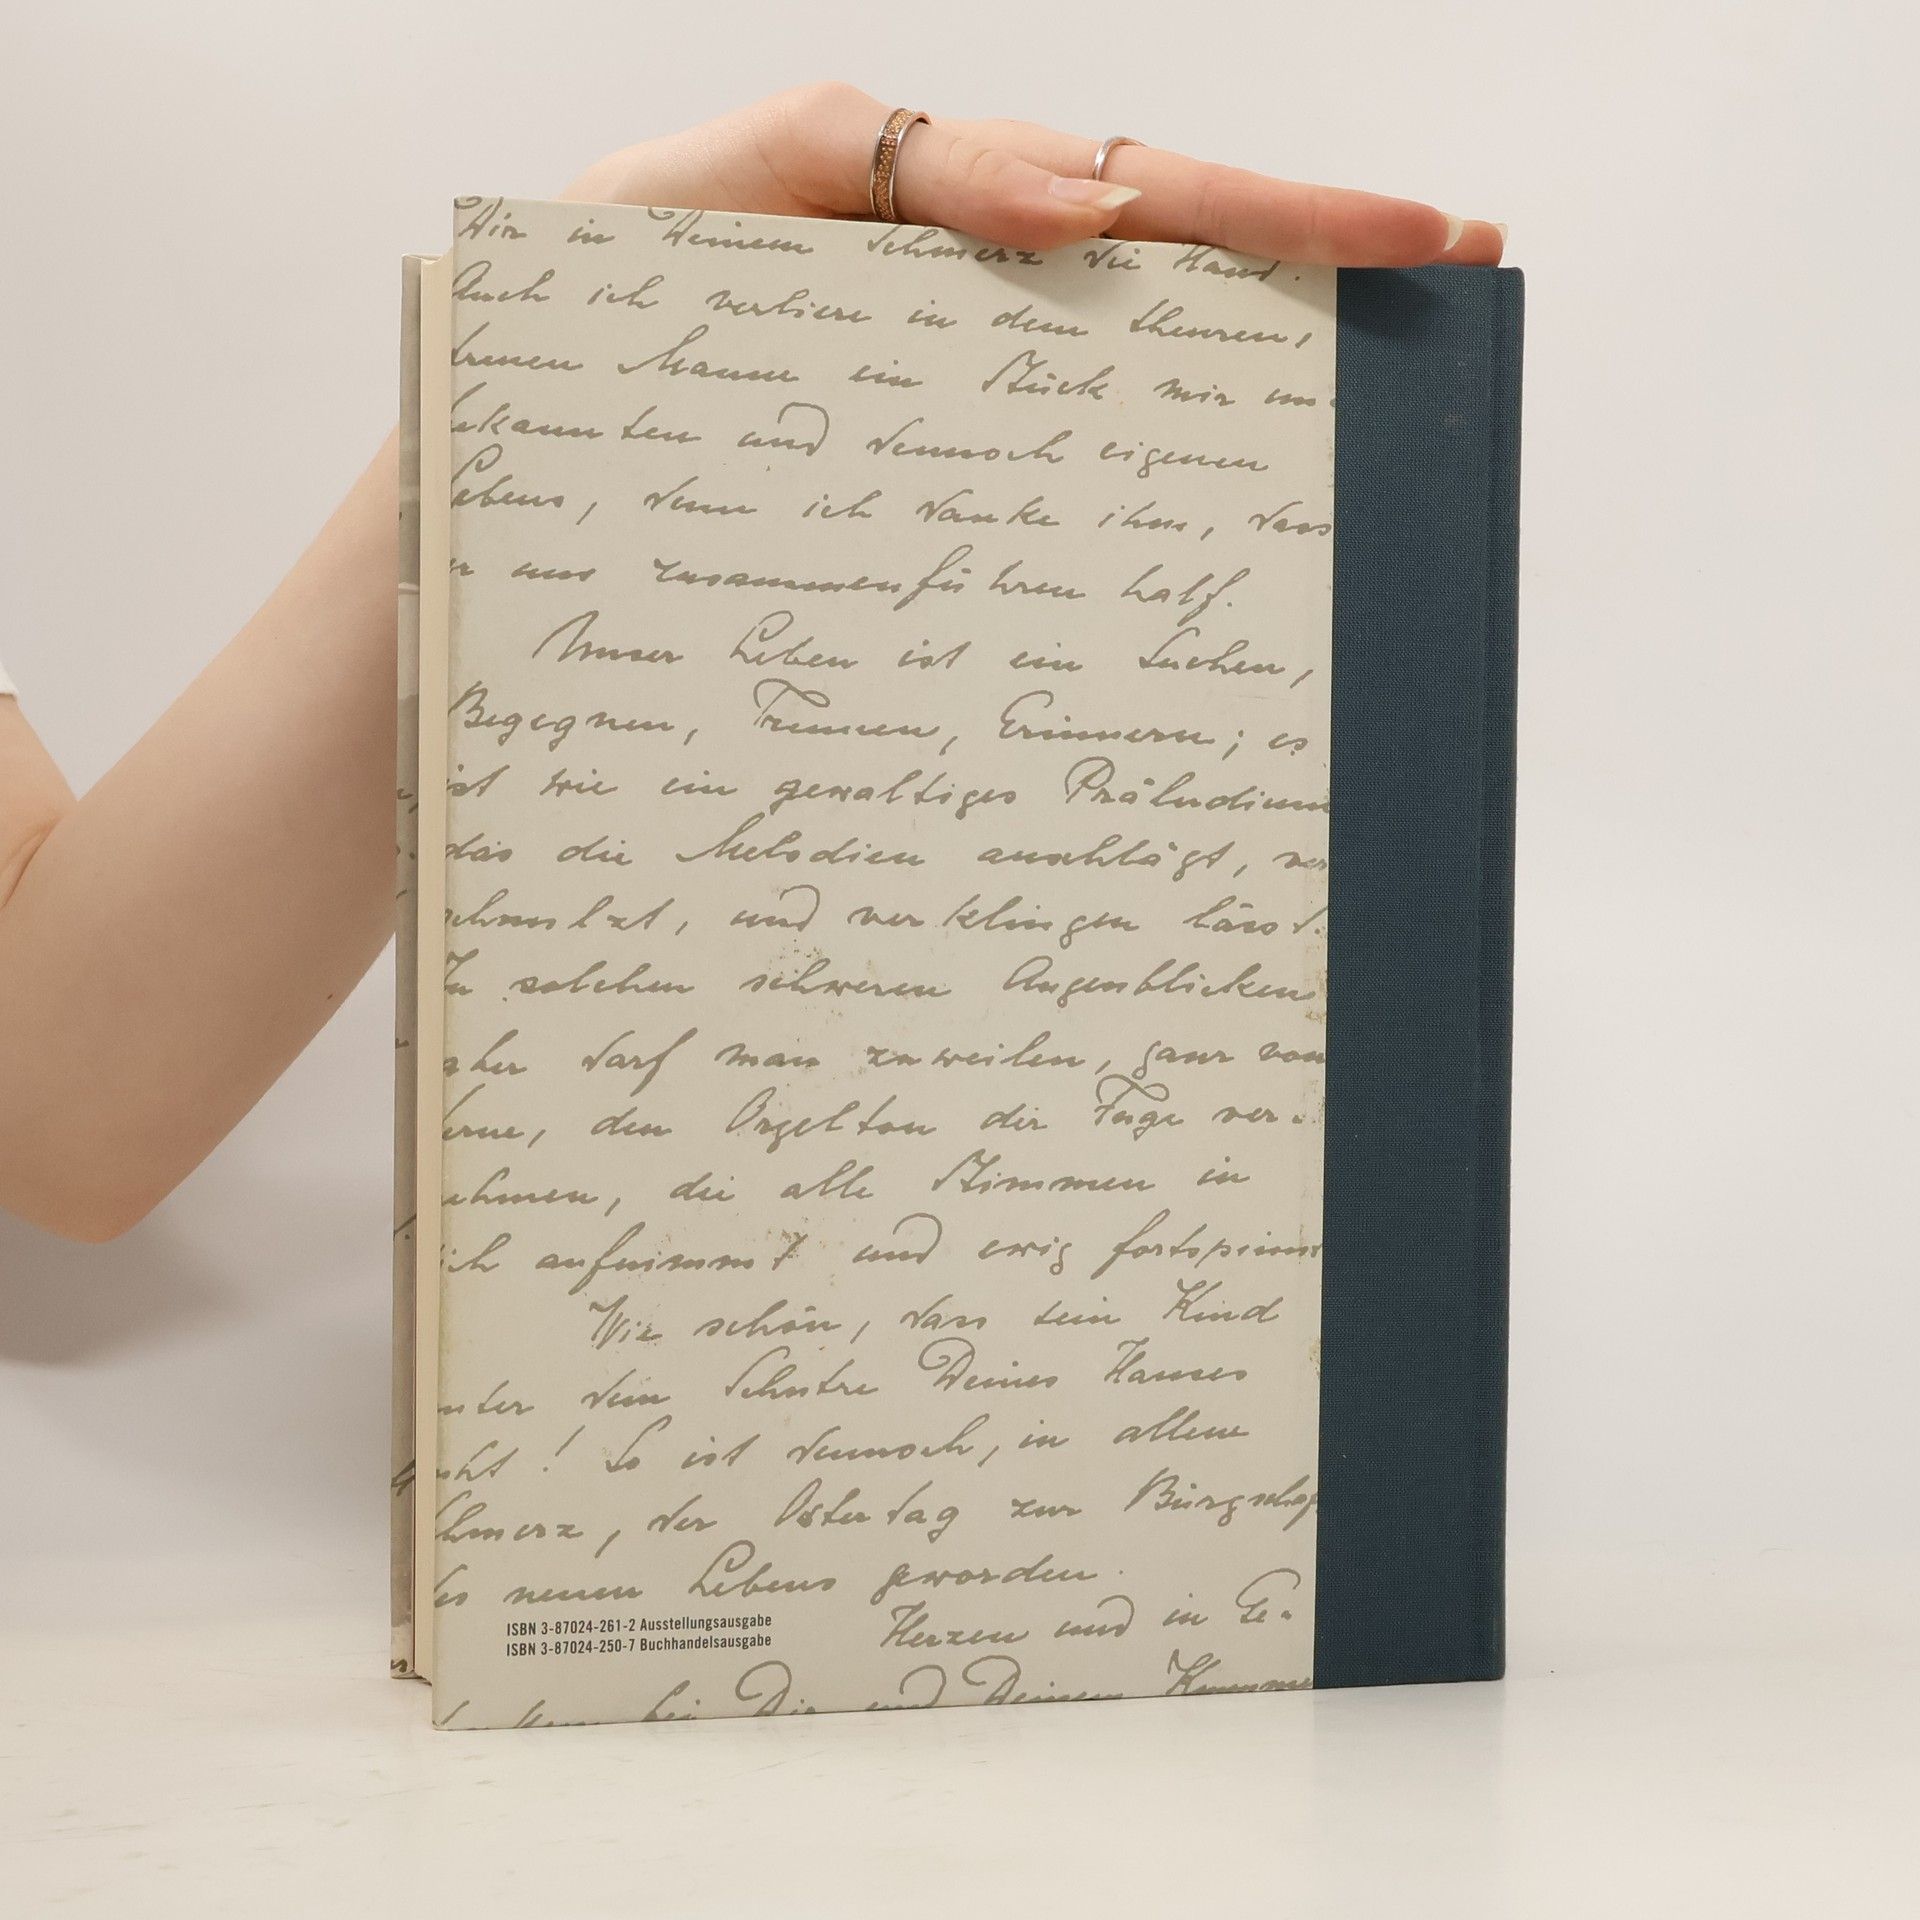 Dir in Deinem Schmerz die Hand.
Auch ich verliere in dem theuren,
treuen Manne ein Stück mir un-
bekannten und dennoch eigenen
Lebens, denn ich danke ihm, dass
er uns zusammenführen half.
Unser Leben ist ein Suchen,
Begegnen, Trennen, Erinnern; es
ist wie ein gewaltiges Präludium
das die Melodien anschlägt, ver
schmilzt, und verklingen lässt.
In solchen schweren Augenblicken
aber darf man zuweilen, ganz von
ferne, den Orgelton der Fuge ver-
nehmen, die alle Stimmen in
sich aufnimmt und ewig fortspinnt
Wie schön, dass sein Kind
unter dem Schutze Deines Hauses
! So ist dennoch, in allem
Schmerz, der Ostertag zur Bürgschaf
des neuen Lebens geworden.
Herzen und in Ge-
bei Dir und Deinem Kumme
ISBN 3-87024-261-2 Ausstellungsausgabe
ISBN 3-87024-250-7 Buchhandelsausgabe